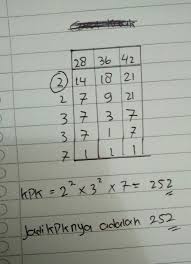 28 36 42
2 14 18 21
2 7 9 21
3 7 3 7
3 7 1 7
7 1 1 1
KPK = 2² × 3² × 7 = 252
Jadi KPKnya adalah 252